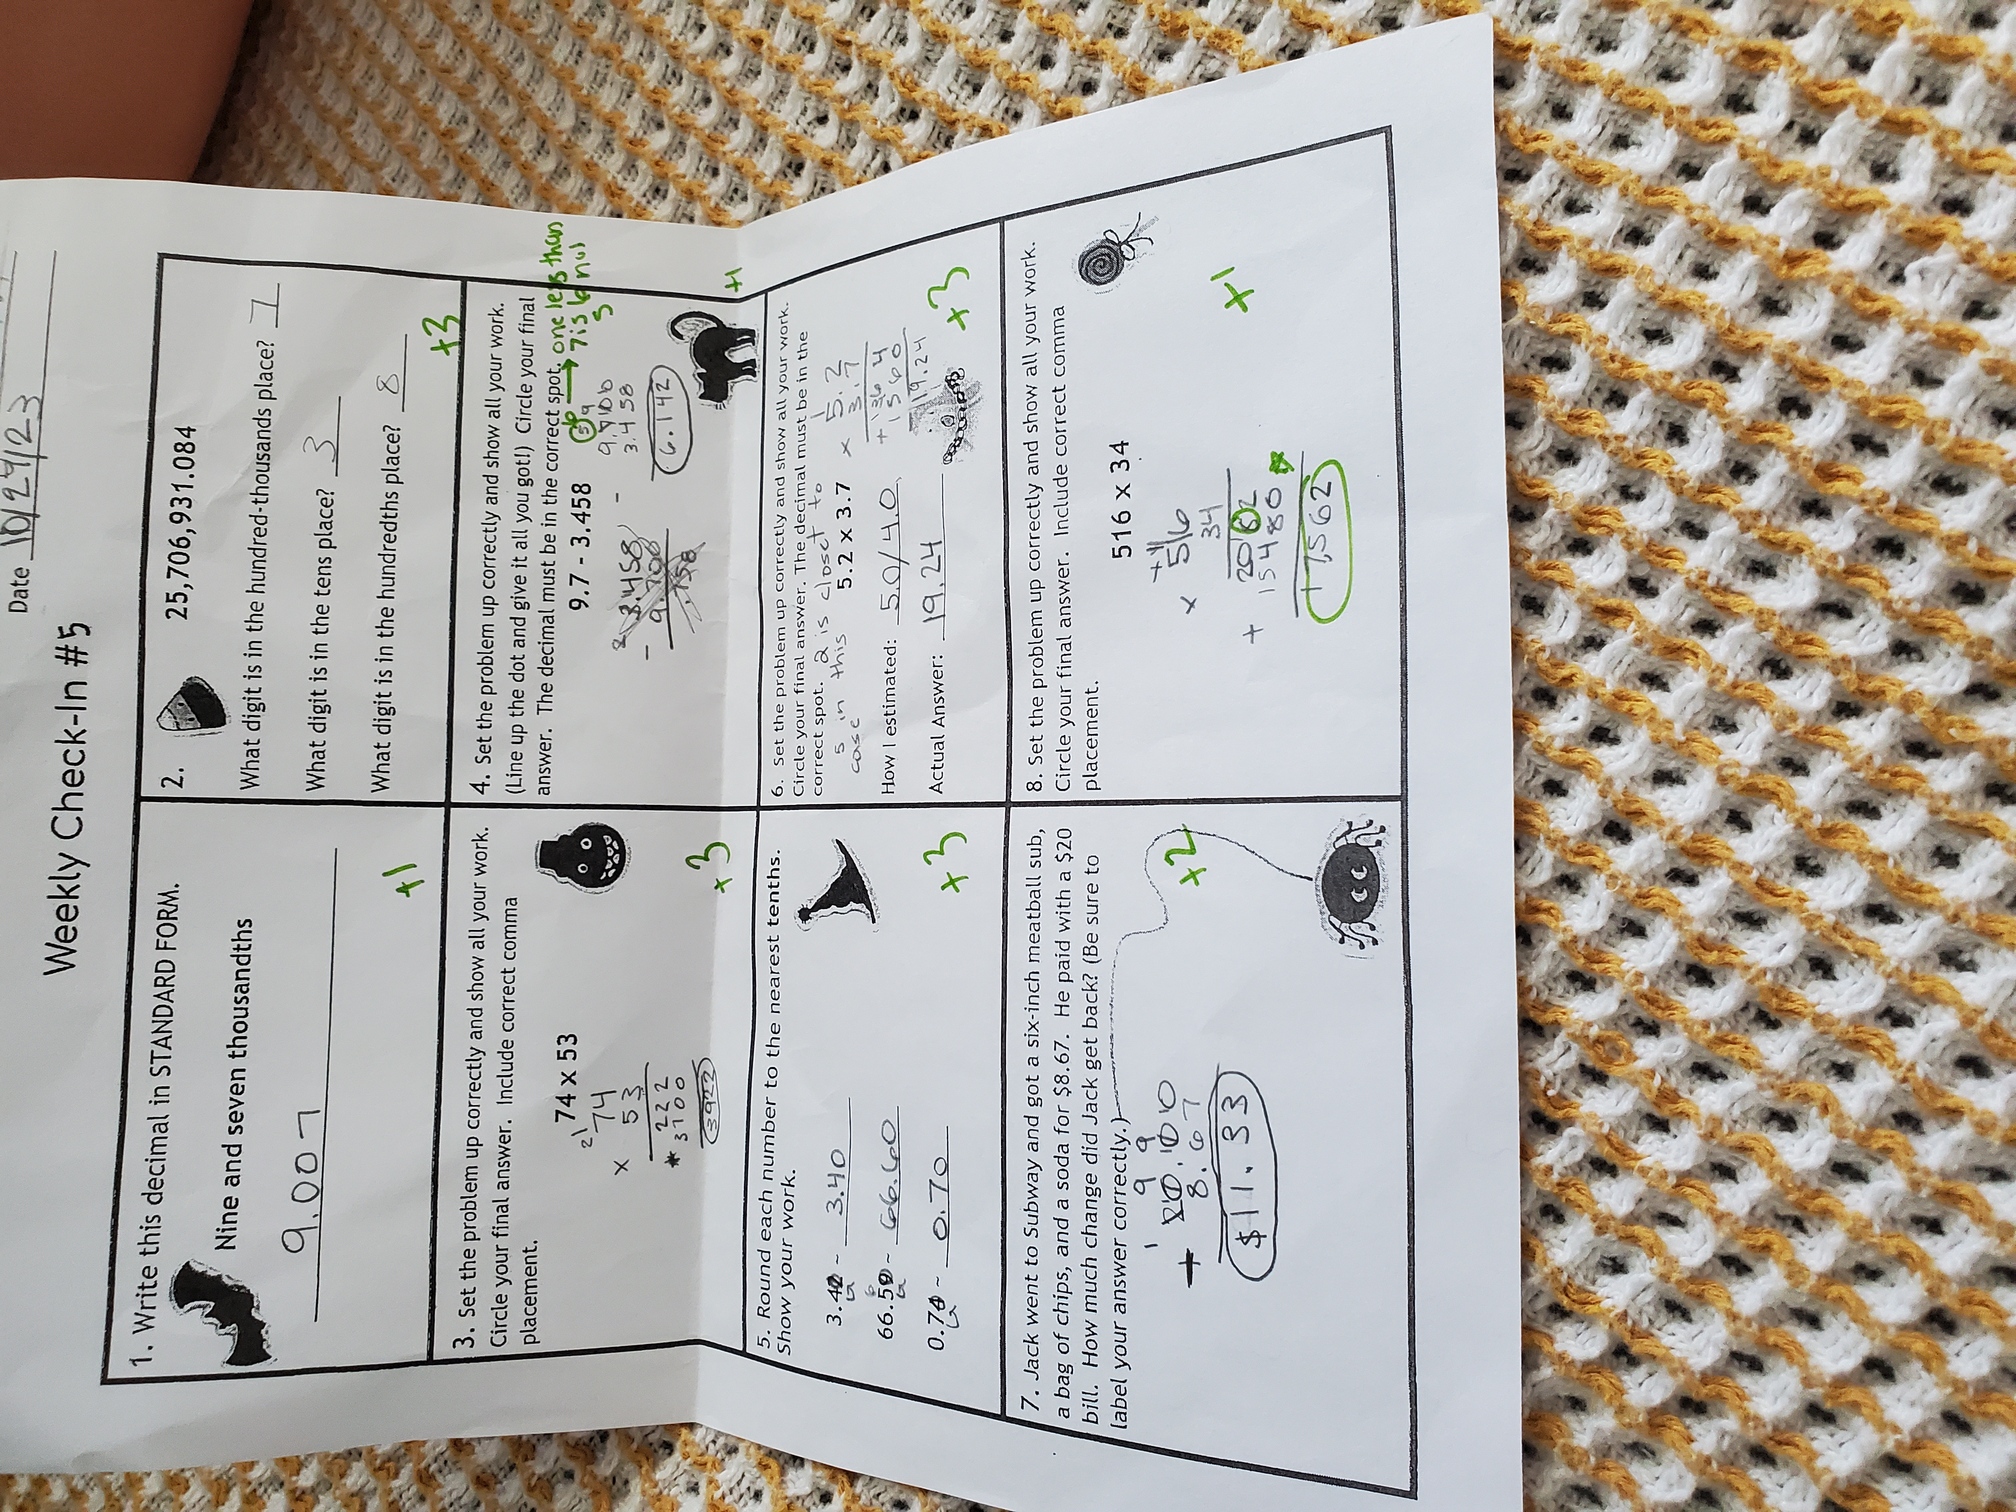 Date 10/24/23
Weekly Check-In #5
1. Write this decimal in STANDARD FORM.
Nine and seven thousandths
9.007
+1
2.
25,706,931.084
What digit is in the hundred-thousands place? 7
What digit is in the tens place? 3
What digit is in the hundredths place? 8
+3
3. Set the problem up correctly and show all your work.
Circle your final answer. Include correct comma
placement.
74 x 53
21
74
x 53
222
3700
3922
+3
4. Set the problem up correctly and show all your work.
(Line up the dot and give it all you got!) Circle your final
answer. The decimal must be in the correct spot.
one less than
7 is 6 not
5
9.7 - 3.458
3.458
- 9.700
.758
5 9
- 9.7100
3.458
6.142
+1
5. Round each number to the nearest tenths.
Show your work.
3.42 ~ 3.40
66.59 ~ 66.60
0.74 ~ 0.70
+3
6. Set the problem up correctly and show all your work.
Circle your final answer. The decimal must be in the
correct spot.
2 is closet to
5 in this
case
5.2 x 3.7
1
5.2
x 3.7
+ 364
1560
19.24
How I estimated: 5.0/4.0
Actual Answer: 19.24
+3
7. Jack went to Subway and got a six-inch meatball sub,
a bag of chips, and a soda for $8.67. He paid with a $20
bill. How much change did Jack get back? (Be sure to
label your answer correctly.)
1 9 9
20.100
8.67
$11.33
+2
8. Set the problem up correctly and show all your work.
Circle your final answer. Include correct comma
placement.
516 x 34
516
x 34
2082
+ 15480
17,562
+1